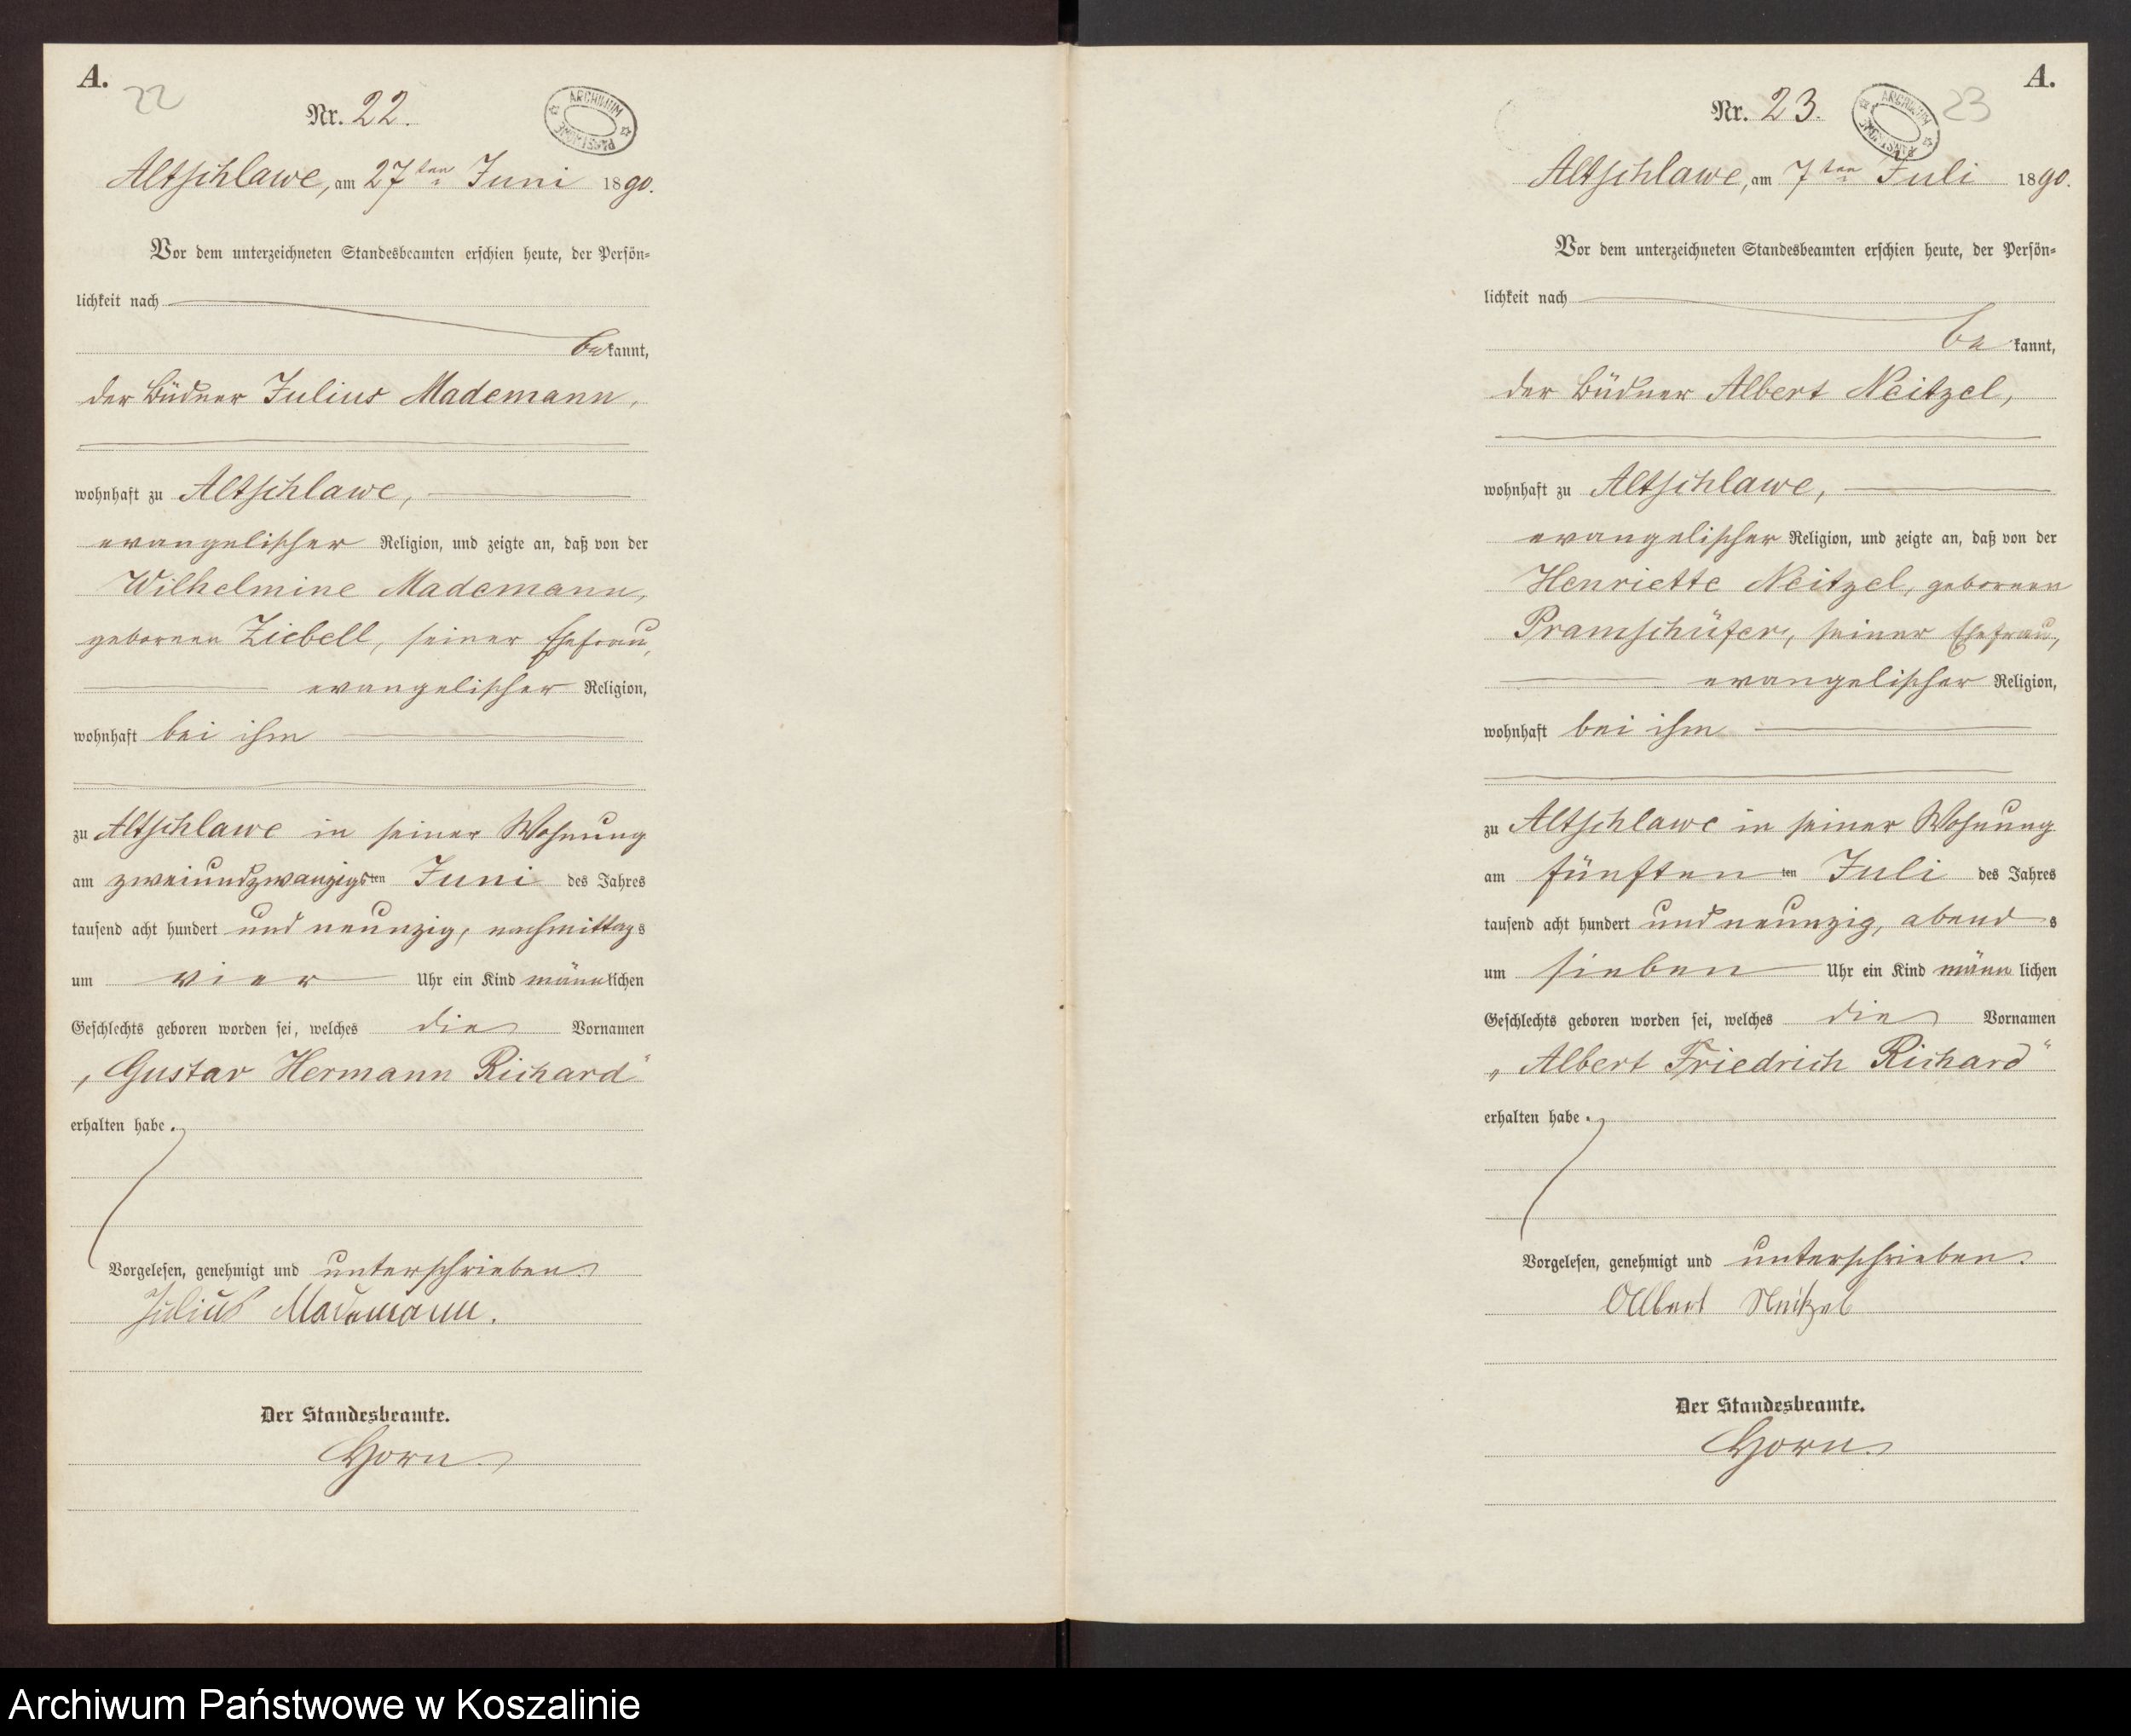 A.
22
Nr. 22.
ARCHIWUM PAŃSTWOWE
Altschlawe, am 27ten Juni 1890.
Vor dem unterzeichneten Standesbeamten erschien heute, der Persön-
lichkeit nach
bekannt,
der Büdner Julius Mademann,
wohnhaft zu Altschlawe,
evangelischer Religion, und zeigte an, daß von der
Wilhelmine Mademann,
geborenen Ziebell, seiner Ehefrau,
evangelischer Religion,
wohnhaft bei ihm
zu Altschlawe in seiner Wohnung
am zweiundzwanzigsten Juni des Jahres
tausend acht hundert und neunzig, nachmittags
um vier Uhr ein Kind männlichen
Geschlechts geboren worden sei, welches die Vornamen
„Gustav Hermann Richard“
erhalten habe.
Vorgelesen, genehmigt und unterschrieben.
Julius Mademann.
Der Standesbeamte.
Horn.
A.
23
Nr. 23.
ARCHIWUM PAŃSTWOWE
Altschlawe, am 7ten Juli 1890.
Vor dem unterzeichneten Standesbeamten erschien heute, der Persön-
lichkeit nach
bekannt,
der Büdner Albert Neitzel,
wohnhaft zu Altschlawe,
evangelischer Religion, und zeigte an, daß von der
Henriette Neitzel, geborenen
Pramschüfer, seiner Ehefrau,
evangelischer Religion,
wohnhaft bei ihm
zu Altschlawe in seiner Wohnung
am fünften ten Juli des Jahres
tausend acht hundert und neunzig, abends
um sieben Uhr ein Kind männlichen
Geschlechts geboren worden sei, welches die Vornamen
„Albert Friedrich Richard“
erhalten habe.
Vorgelesen, genehmigt und unterschrieben.
Albert Neitzel
Der Standesbeamte.
Horn.
Archiwum Państwowe w Koszalinie